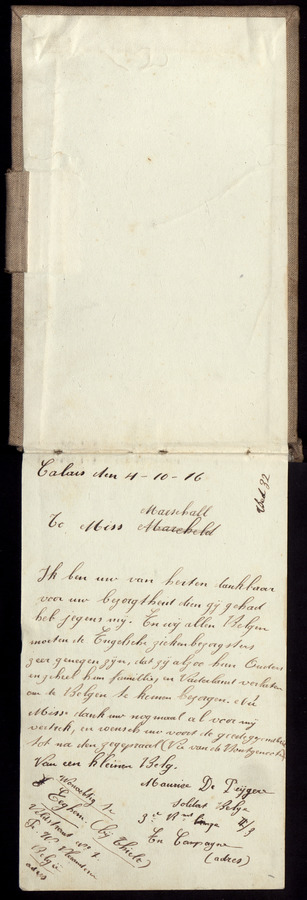 Calais den 4-10-16
Bed 32
Marshall
To Miss Marcheld
Ik ben uw van herten dankbaar
voor uw bezorgtheid dien gij gehad
heb jegens mij. En wij allen Belgen
moeten de Engelsche ziekenbezorgsters
zeer genegen zijn, dat zij alzoo hun Ouders
en geheel hun familie, en Vaderland verlaten
om de Belgen te komen bezorgen. Nu
Miss dank uw nogmaal al voor mij
vertrek, en wensch uw voort de goede gezondheid
tot na den zegepraal (Vee van de
Van een kleinen Belg.
Maurice De Tryger
Soldat Belge
3e II/3
En Campagne
(adres)
Woonachtig te
Eeghem (bij Thielt)
Vlaanderen
Belgie
adres